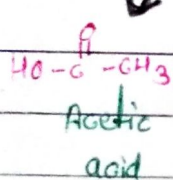 O
HO-C-CH3
Acetic
acid